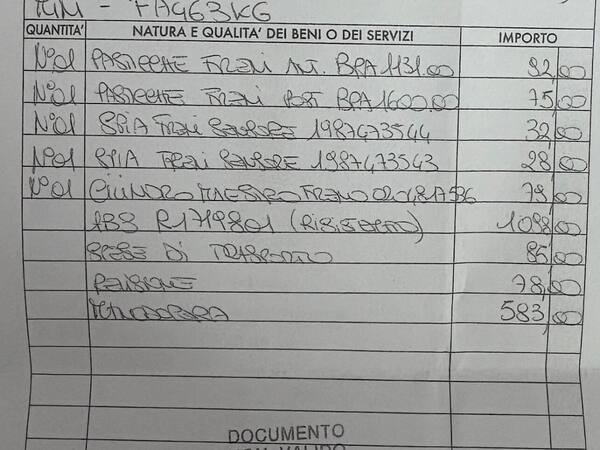 FA963KG
QUANTITA' NATURA E QUALITA' DEI BENI O DEI SERVIZI IMPORTO
N°01 PASTICCHE FRENI ANT. BRA1131.00 92,00
N°01 PASTICCHE FRENI POST BRA1600.00 75,00
N°01 SPIA FRENI SENSORE 1987473544 32,00
N°01 SPIA FRENI SENSORE 1987473543 28,00
N°01 CILINDRO MAESTRO FRENO 79,00
ABS R1719801 1098,00
SPESE DI TRASPORTO 85,00
REVISIONE 78,00
MANODOPERA 583,00
DOCUMENTO